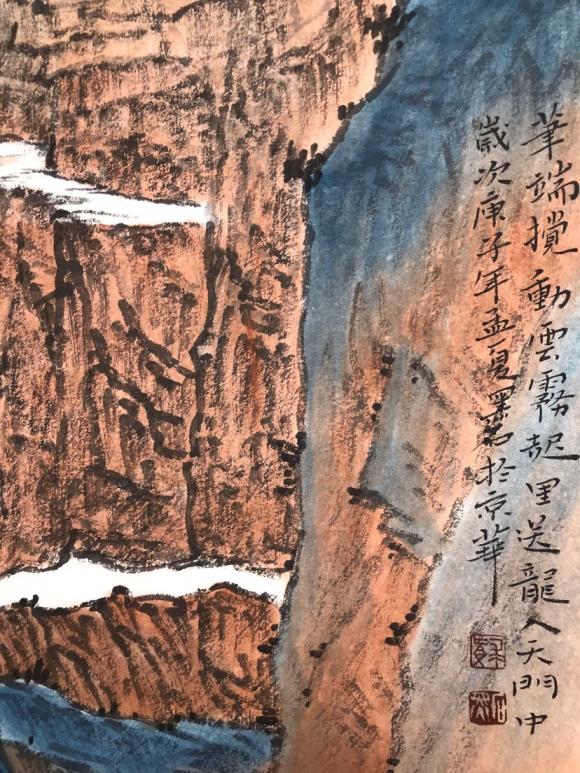 筆端攪動雲霧起里送龍入天門中
歲次庚子年孟夏墨石於京華